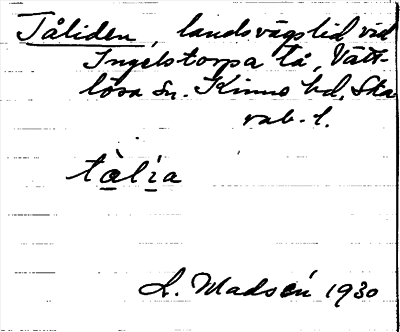 Tåliden, landsvägslid vid
Ingelstorpa tå, Vätt-
lösa sn. Kinne hd, Ska
rab. l.
tàlia
L. Madsén 1930